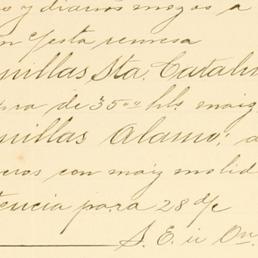 y diarios mozos a
n esta remesa
millas Sta. Catali
ra de 35°° hls. maiz
millas Alamo; a
ros con maiz molid
tencia para 28 d/c
S. E. ú O